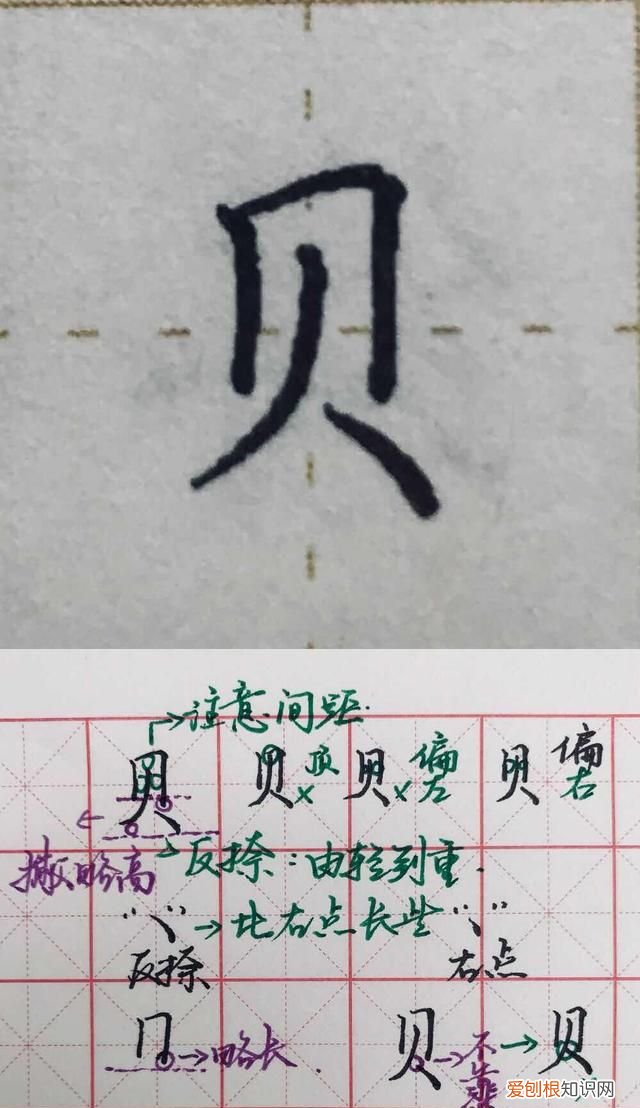 贝
注意间距.
贝 贝 顶 × 贝 × 偏左 贝 偏右
撇略高
反捺:由轻到重.
"㇏"→比右点长些"丶"
反捺 右点
冂→略长. 贝→不靠→贝
爱刨根知识网